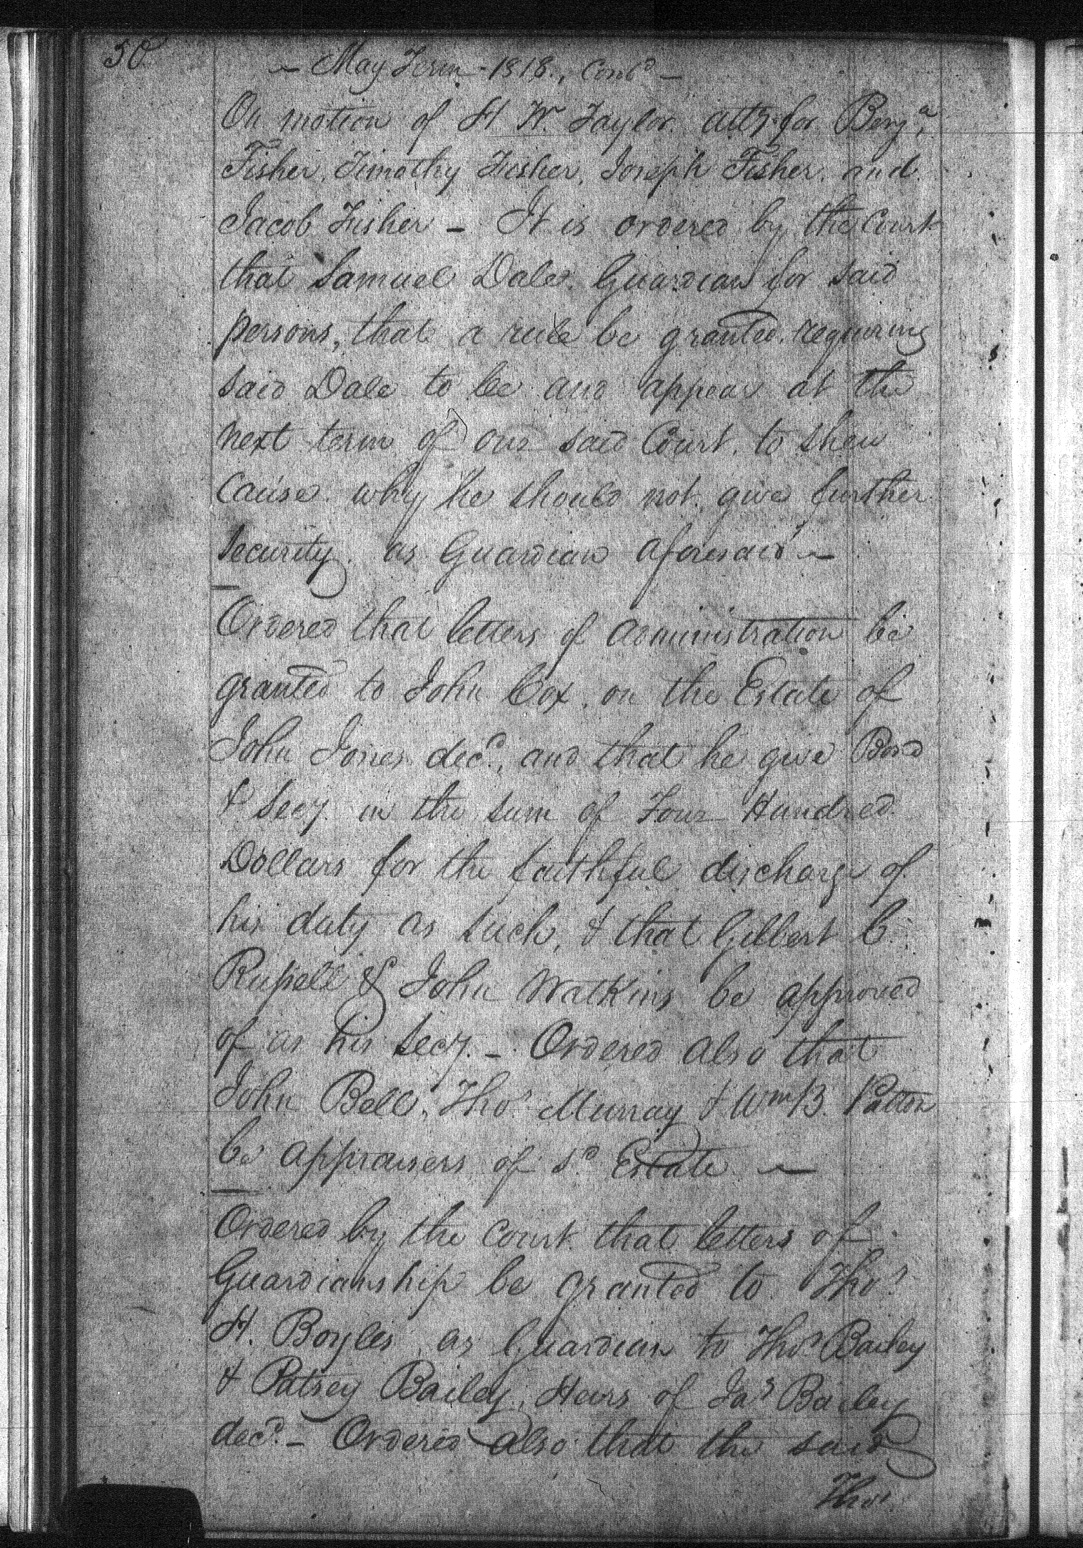 30
~ May Term - 1818., Cont.d –
On motion of H W. Taylor. atty. for Benj.n
Fisher, Timothy Fisher, Joseph Fisher. and
Jacob Fisher – It is ordered by the Court
that Samuel Dale. Guardian for said
persons, that a rule be granted. requiring
said Dale to be and appear at the
next term of our said Court. to shew
Cause. why he should not, give further
Security. as Guardian aforesaid ~
Ordered that letters of administration be
granted to John Cox, on the Estate of
John Jones dec.d, and that he give Bond
& Secy. in the sum of Four Hundred
Dollars for the faithful discharge of
his duty as such, & that Gilbert C.
Russell & John Watkins be approved
of as his Secy. – Ordered also that
John Bell, Thos. Murray & Wm B. Patton
be appraisers of sd. Estate ~
Ordered by the Court that letters of
Guardianship be granted to Thos.
H. Boyles as Guardian to Thos. Bailey
& Patsey Bailey, Heirs of Jas. Bailey
decd. – Ordered also that the said
Thos.